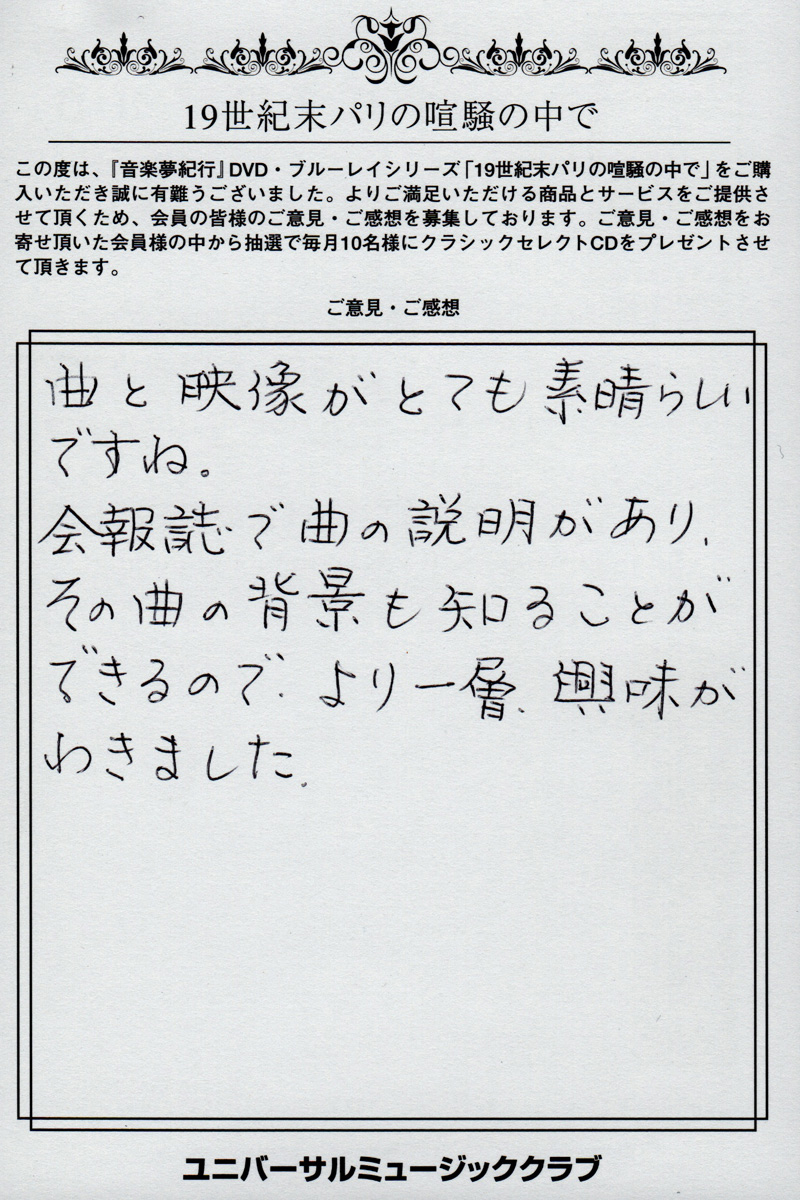 19世紀末パリの喧騒の中で
この度は、『音楽夢紀行』DVD・ブルーレイシリーズ「19世紀末パリの喧騒の中で」をご購
入いただき誠に有難うございました。よりご満足いただける商品とサービスをご提供さ
せて頂くため、会員の皆様のご意見・ご感想を募集しております。ご意見・ご感想をお
寄せ頂いた会員様の中から抽選で毎月10名様にクラシックセレクトCDをプレゼントさせ
て頂きます。
ご意見・ご感想
曲と映像がとても素晴らしい
ですね。
会報誌で曲の説明があり、
その曲の背景も知ることが
できるので、より一層、興味が
わきました。
ユニバーサルミュージッククラブ